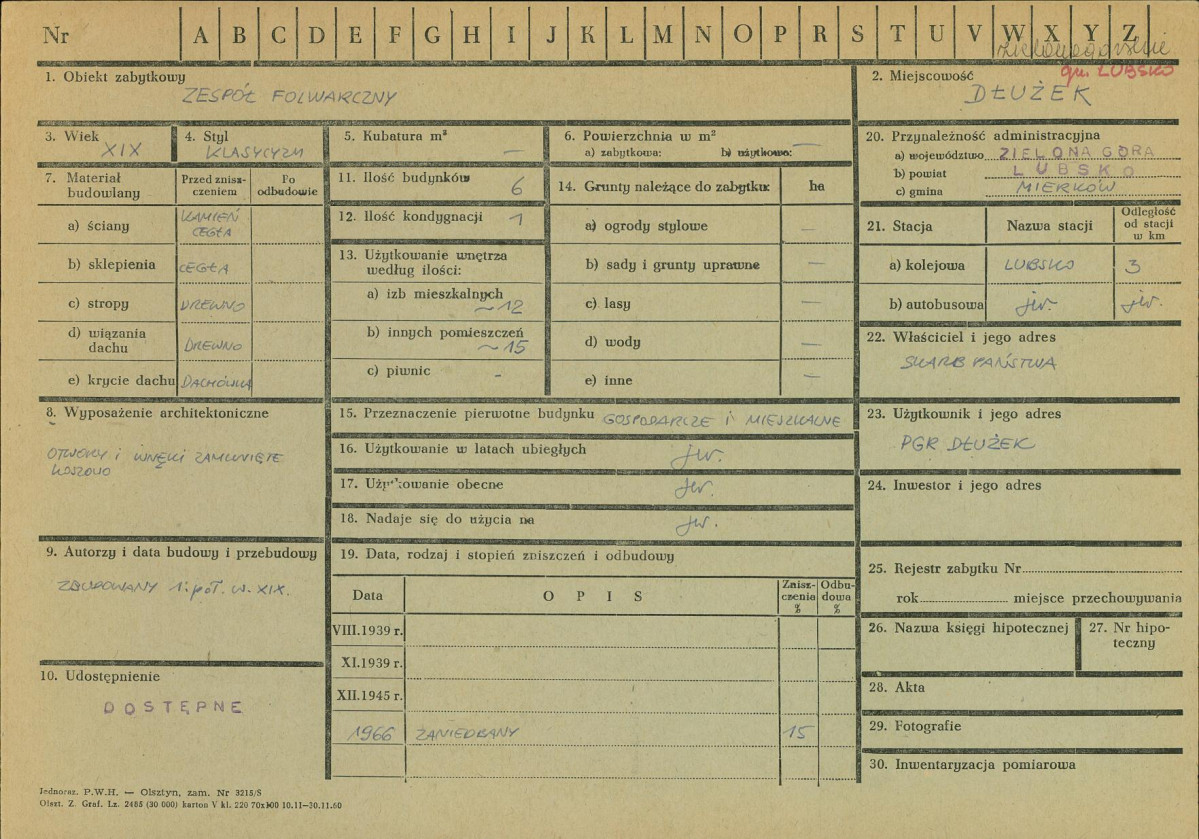 Nr A B C D E F G H I J K L M N O P R S T U V W X Y Z
zielonogórskie
gm. LUBSKO
1. Obiekt zabytkowy
ZESPÓŁ FOLWARCZNY
2. Miejscowość
DŁUŻEK
3. Wiek
XIX
4. Styl
KLASYCYZM
5. Kubatura m³
—
6. Powierzchnia w m²
a) zabytkowa: b) użytkowa:
—
20. Przynależność administracyjna
a) województwo ZIELONA GÓRA
b) powiat LUBSKO
c) gmina MIERKÓW
7. Materiał budowlany
Przed zniszczeniem
Po odbudowie
a) ściany KAMIEŃ CEGŁA
b) sklepienia CEGŁA
c) stropy DREWNO
d) wiązania dachu DREWNO
e) krycie dachu DACHÓWKA
11. Ilość budynków 6
12. Ilość kondygnacji 1
13. Użytkowanie wnętrza
według ilości:
a) izb mieszkalnych
~12
b) innych pomieszczeń
~15
c) piwnic -
14. Grunty należące do zabytku ha
a) ogrody stylowe —
b) sady i grunty uprawne —
c) lasy —
d) wody —
e) inne —
21. Stacja Nazwa stacji Odległość od stacji w km
a) kolejowa LUBSKO 3
b) autobusowa jw. jw.
22. Właściciel i jego adres
SKARB PAŃSTWA
8. Wyposażenie architektoniczne
OTWORY i WNĘKI ZAMKNIĘTE
KOSZOWO
15. Przeznaczenie pierwotne budynku GOSPODARCZE i MIESZKALNE
16. Użytkowanie w latach ubiegłych jw.
17. Użytkowanie obecne jw.
18. Nadaje się do użycia na jw.
23. Użytkownik i jego adres
PGR DŁUŻEK
24. Inwestor i jego adres
9. Autorzy i data budowy i przebudowy
ZBUDOWANY 1. poł. w. XIX.
19. Data, rodzaj i stopień zniszczeń i odbudowy
Data OPIS Zniszczenia % Odbudowa %
VIII.1939 r.
XI.1939 r.
XII.1945 r.
1966 ZANIEDBANY 15
10. Udostępnienie
DOSTĘPNE
25. Rejestr zabytku Nr
rok miejsce przechowywania
26. Nazwa księgi hipotecznej
27. Nr hipoteczny
28. Akta
29. Fotografie
30. Inwentaryzacja pomiarowa
Jednoraz. P.W.H. — Olsztyn, zam. Nr 3215/S
Olszt. Z. Graf. Lz. 2485 (30 000) karton V kl. 220 70x100 10.11—30.11.60